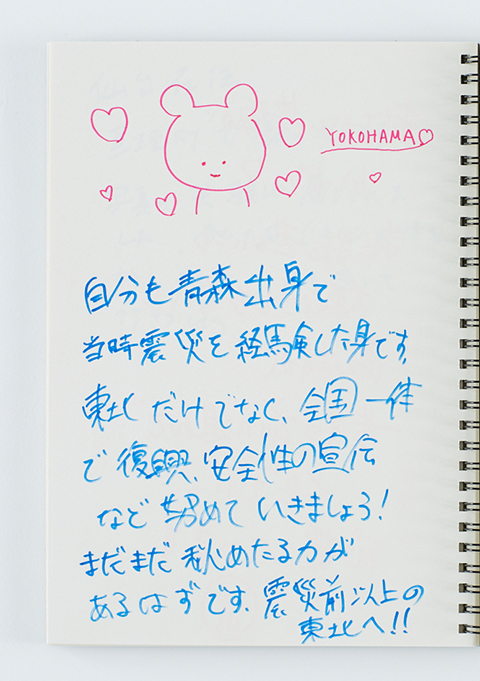 YOKOHAMA♡
自分も青森出身で
当時震災を経験した身です。
東北だけでなく、全国一体
で復興、安全性の宣伝
など努めていきましょう!
まだまだ秘めたる力が
あるはずです。震災前以上の
東北へ!!